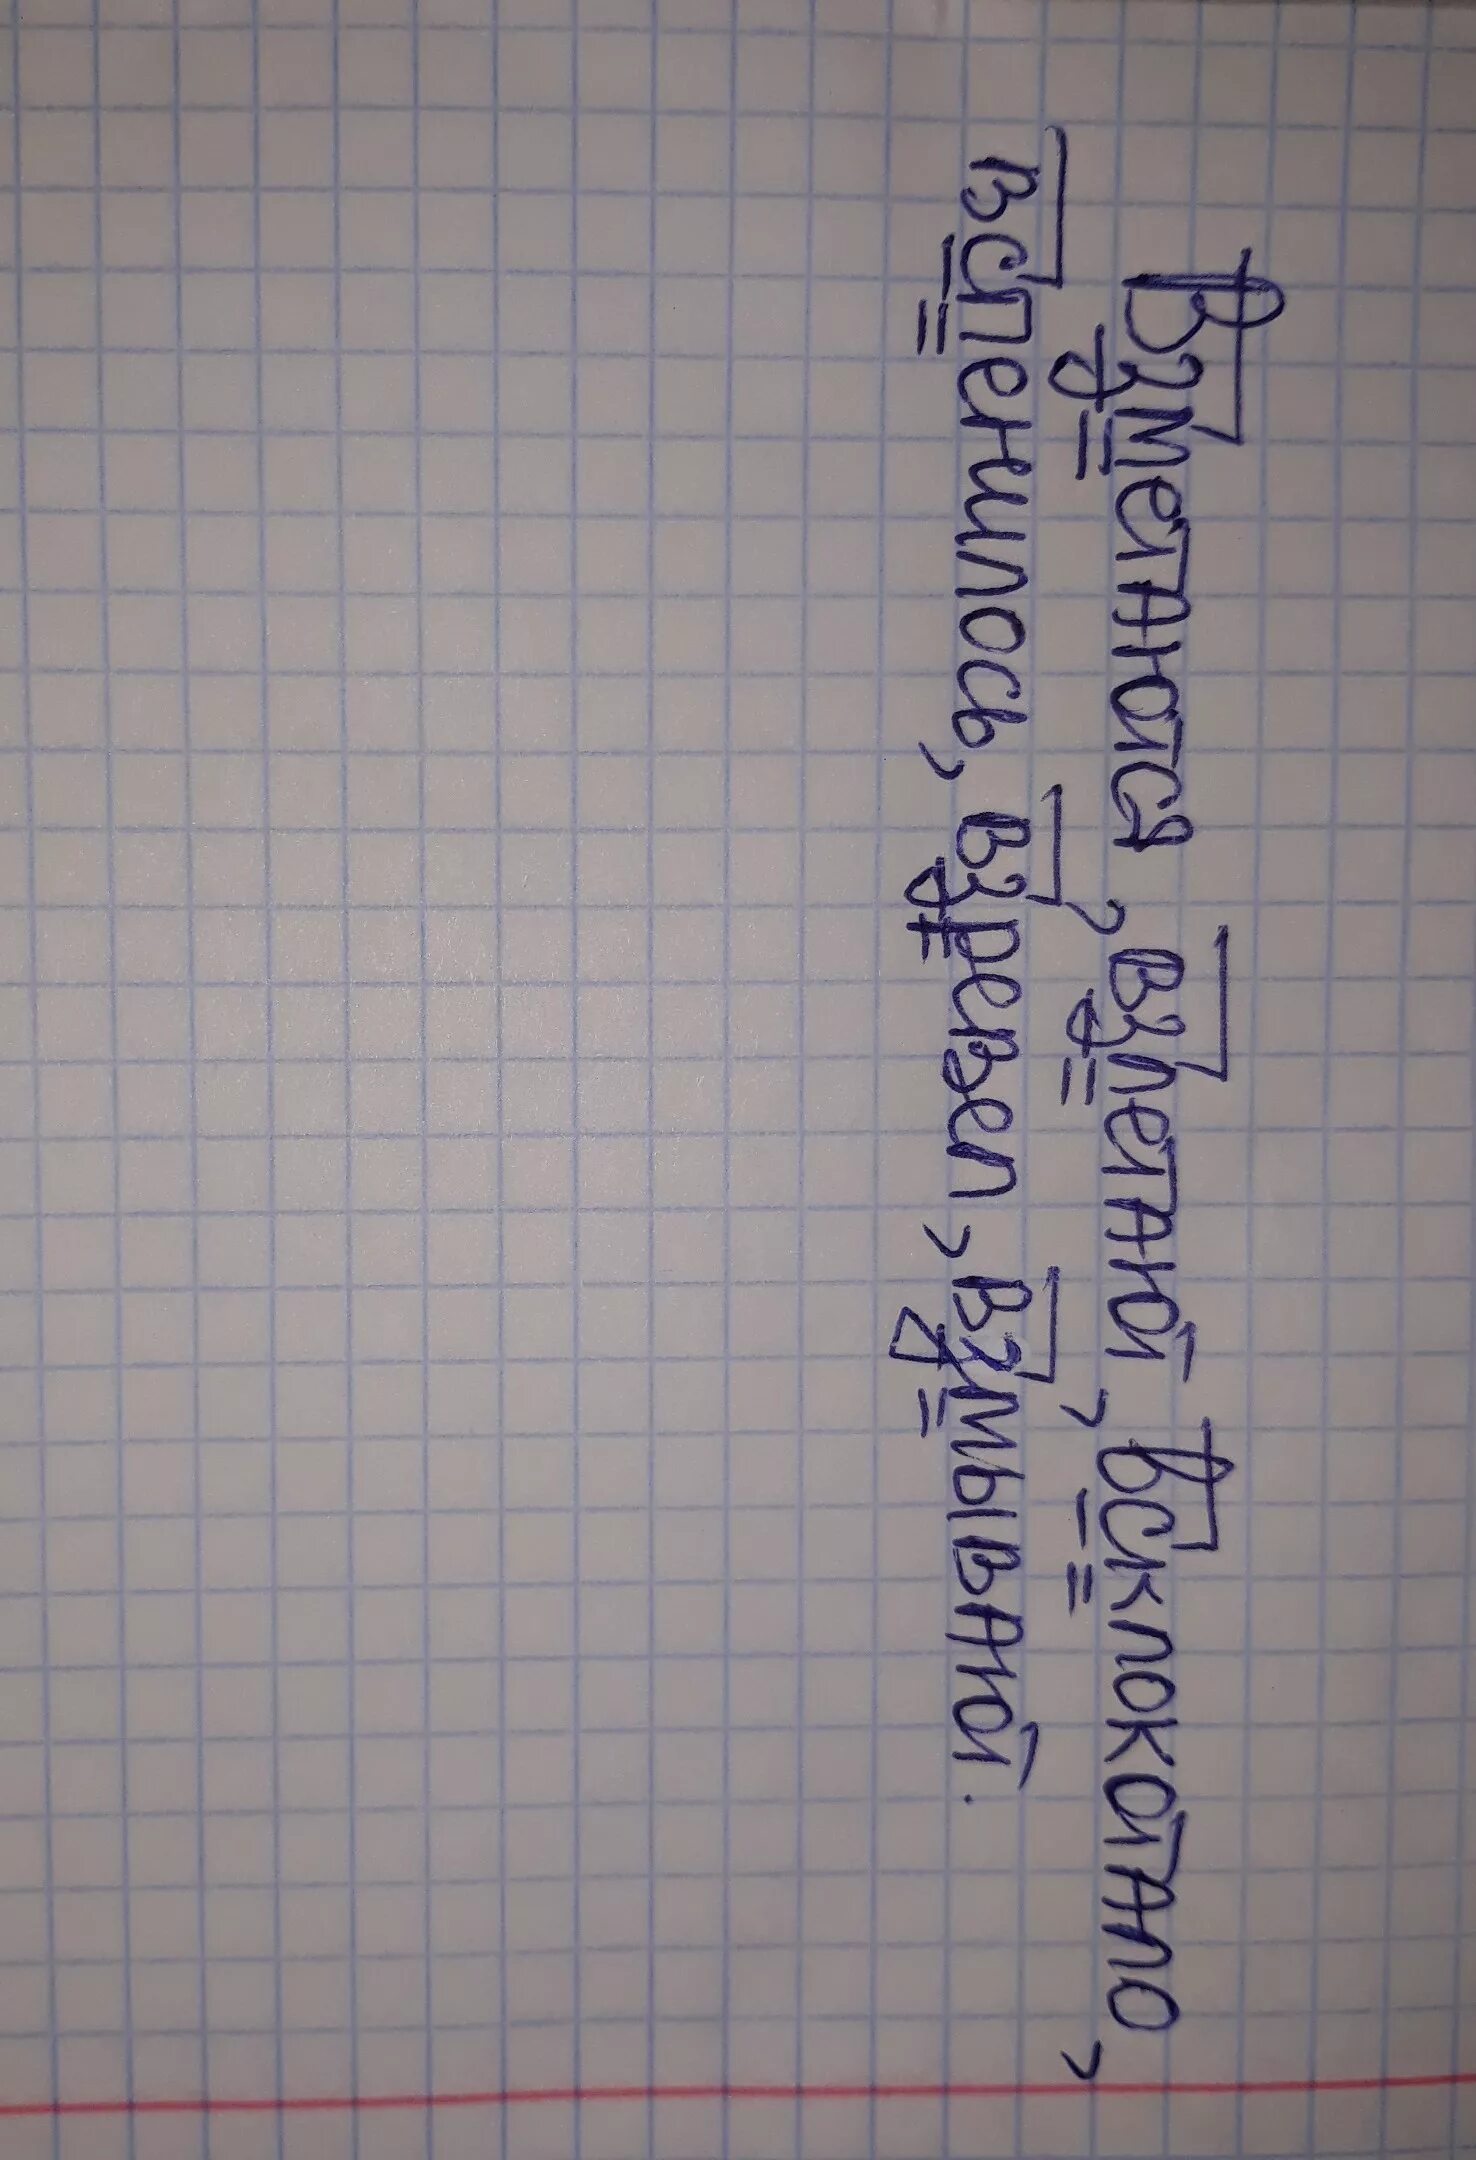 Взметаются, взлетают, всклокотало,
вспенилось, взревел, взмывают.